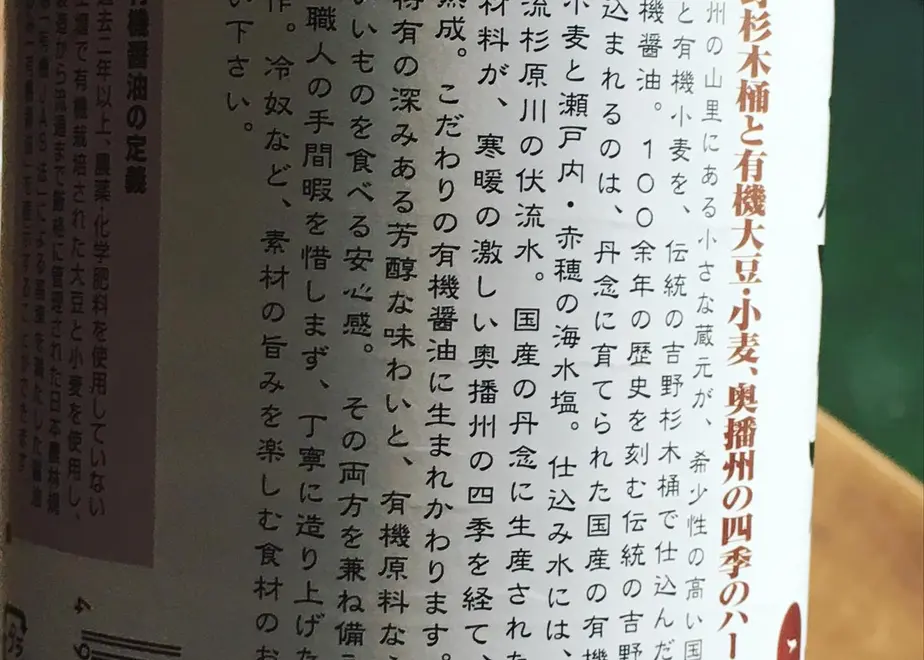 杉木桶と有機大豆・小麦、奥播州の四季のハー
州の山里にある小さな蔵元が、希少性の高い国
と有機小麦を、伝統の吉野杉木桶で仕込んだ
機醤油。100余年の歴史を刻む伝統の吉野
込まれるのは、丹念に育てられた国産の有機
小麦と瀬戸内・赤穂の海水塩。仕込み水には、
流杉原川の伏流水。国産の丹念に生産された
材料が、寒暖の激しい奥播州の四季を経て、
熟成。こだわりの有機醤油に生まれかわります。
特有の深みある芳醇な味わいと、有機原料な
いものを食べる安心感。その両方を兼ね備
職人の手間暇を惜しまず、丁寧に造り上げた
作。冷奴など、素材の旨みを楽しむ食材のお
い下さい。
有機醤油の定義
過去二年以上、農薬・化学肥料を使用していない
土壌で有機栽培された大豆と小麦を使用し、